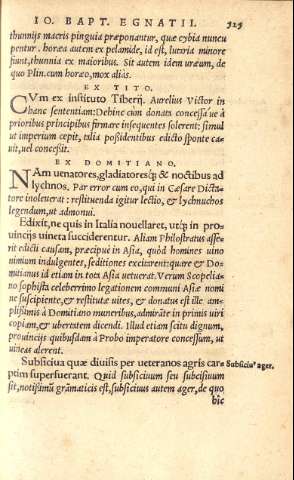 IO. BAPT. EGNATII. 525
thunnijs macris pinguia præponantur, quæ cybia nuncu
pentur. horæa autem ex pelamide, id est, lutaria minore
fiunt, thunnia ex maioribus. Sit autem idem uræum, de
quo Plin. cum horæo, mox aliàs.
EX TITO.
CVm ex instituto Tiberij. Aurelius Victor in
hanc sententiam: Dehinc cùm donata concessa'ue à
prioribus principibus firmare insequentes solerent: simul
ut imperium cepit, talia possidentibus edicto sponte ca-
uit, uel concessit.
EX DOMITIANO.
NAm uenatores, gladiatoresq́; & noctibus ad
lychnos. Par error cum eo, qui in Cæsare Dicta-
tore inoleuerat: restituenda igitur lectio, & lychnuchos
legendum, ut admonui.
Edixit, ne quis in Italia nouellaret, utq́; in pro-
uincijs uineta succiderentur. Aliam Philostratus asse-
rit edicti causam, præcipuè in Asia, quòd homines uino
nimium indulgentes, seditiones excitarent: quare & Do-
mitianus id etiam in tota Asia uetuerat. Verùm Scopelia-
no sophista celeberrimo legationem communi Asiæ nomi
ne suscipiente, & restitutæ uites, & donatus est ille am-
plißimis à Domitiano muneribus, admirãte in primis uiri
copiam, & ubertatem dicendi. Illud etiam scitu dignum,
prouincijs quibusdam à Probo imperatore concessum, ut
uineas alerent.
Subsiciua quæ diuisis per ueteranos agris car- Subsiciu⁹ ager.
ptim superfuerant. Quid subsiciuum seu subcisiuum
sit, notißimũ grãmaticis est, subsiciuus autem ager, de quo
hîc